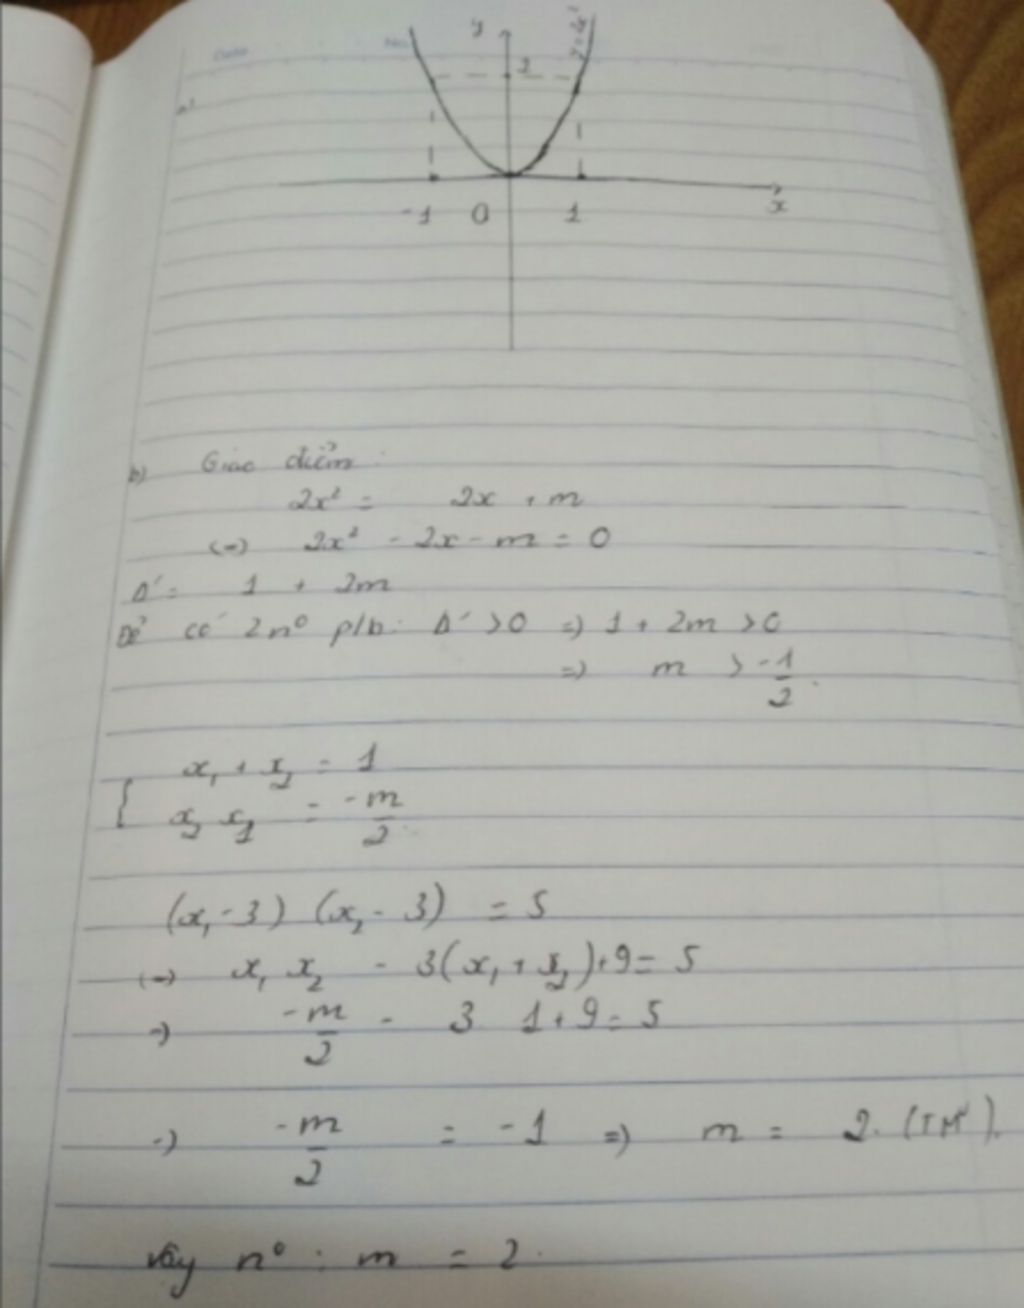 Date No.
a)
y
y = 2x²
2
-1 0 1 x
b) Giao điểm:
2x² = 2x + m
<=> 2x² - 2x - m = 0
Δ' = 1 + 2m
Để có 2 n⁰ p/b: Δ' > 0 => 1 + 2m > 0
=> m > -1/2.
{ x₁ + x₂ = 1
x₂ x₁ = -m/2
(x₁ - 3) (x₂ - 3) = 5
<=> x₁ x₂ - 3(x₁ + x₂) + 9 = 5
=> -m/2 - 3 1 + 9 = 5
=> -m/2 = -1 => m = 2. (TM).
Vậy n⁰ : m = 2.